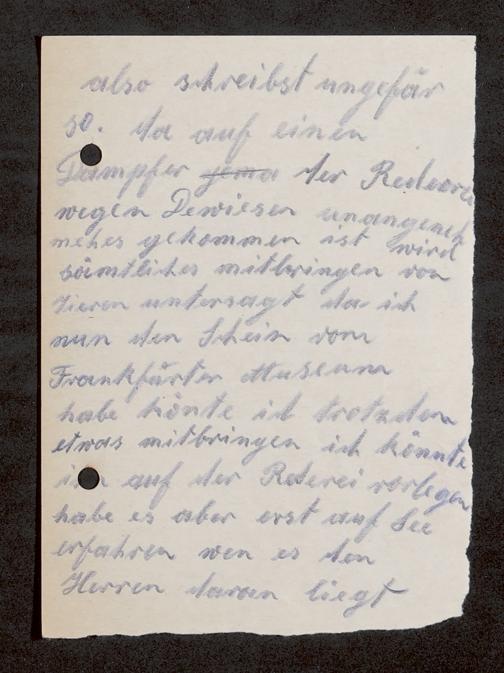 also schreibst ungefär
so. da auf einen
Dampfer jema der Rederei
wegen Dewiesen unangeneh
mehes gekommen ist wird
sämtliches mitbringen von
Tieren untersagt da ich
nun den Schein vom
Frankfürter Museum
habe könte ich trotzdem
etwas mitbringen ich könnte
ihn auf der Rederei vorlegen
habe es aber erst auf See
erfahren wen es den
Herren daran liegt